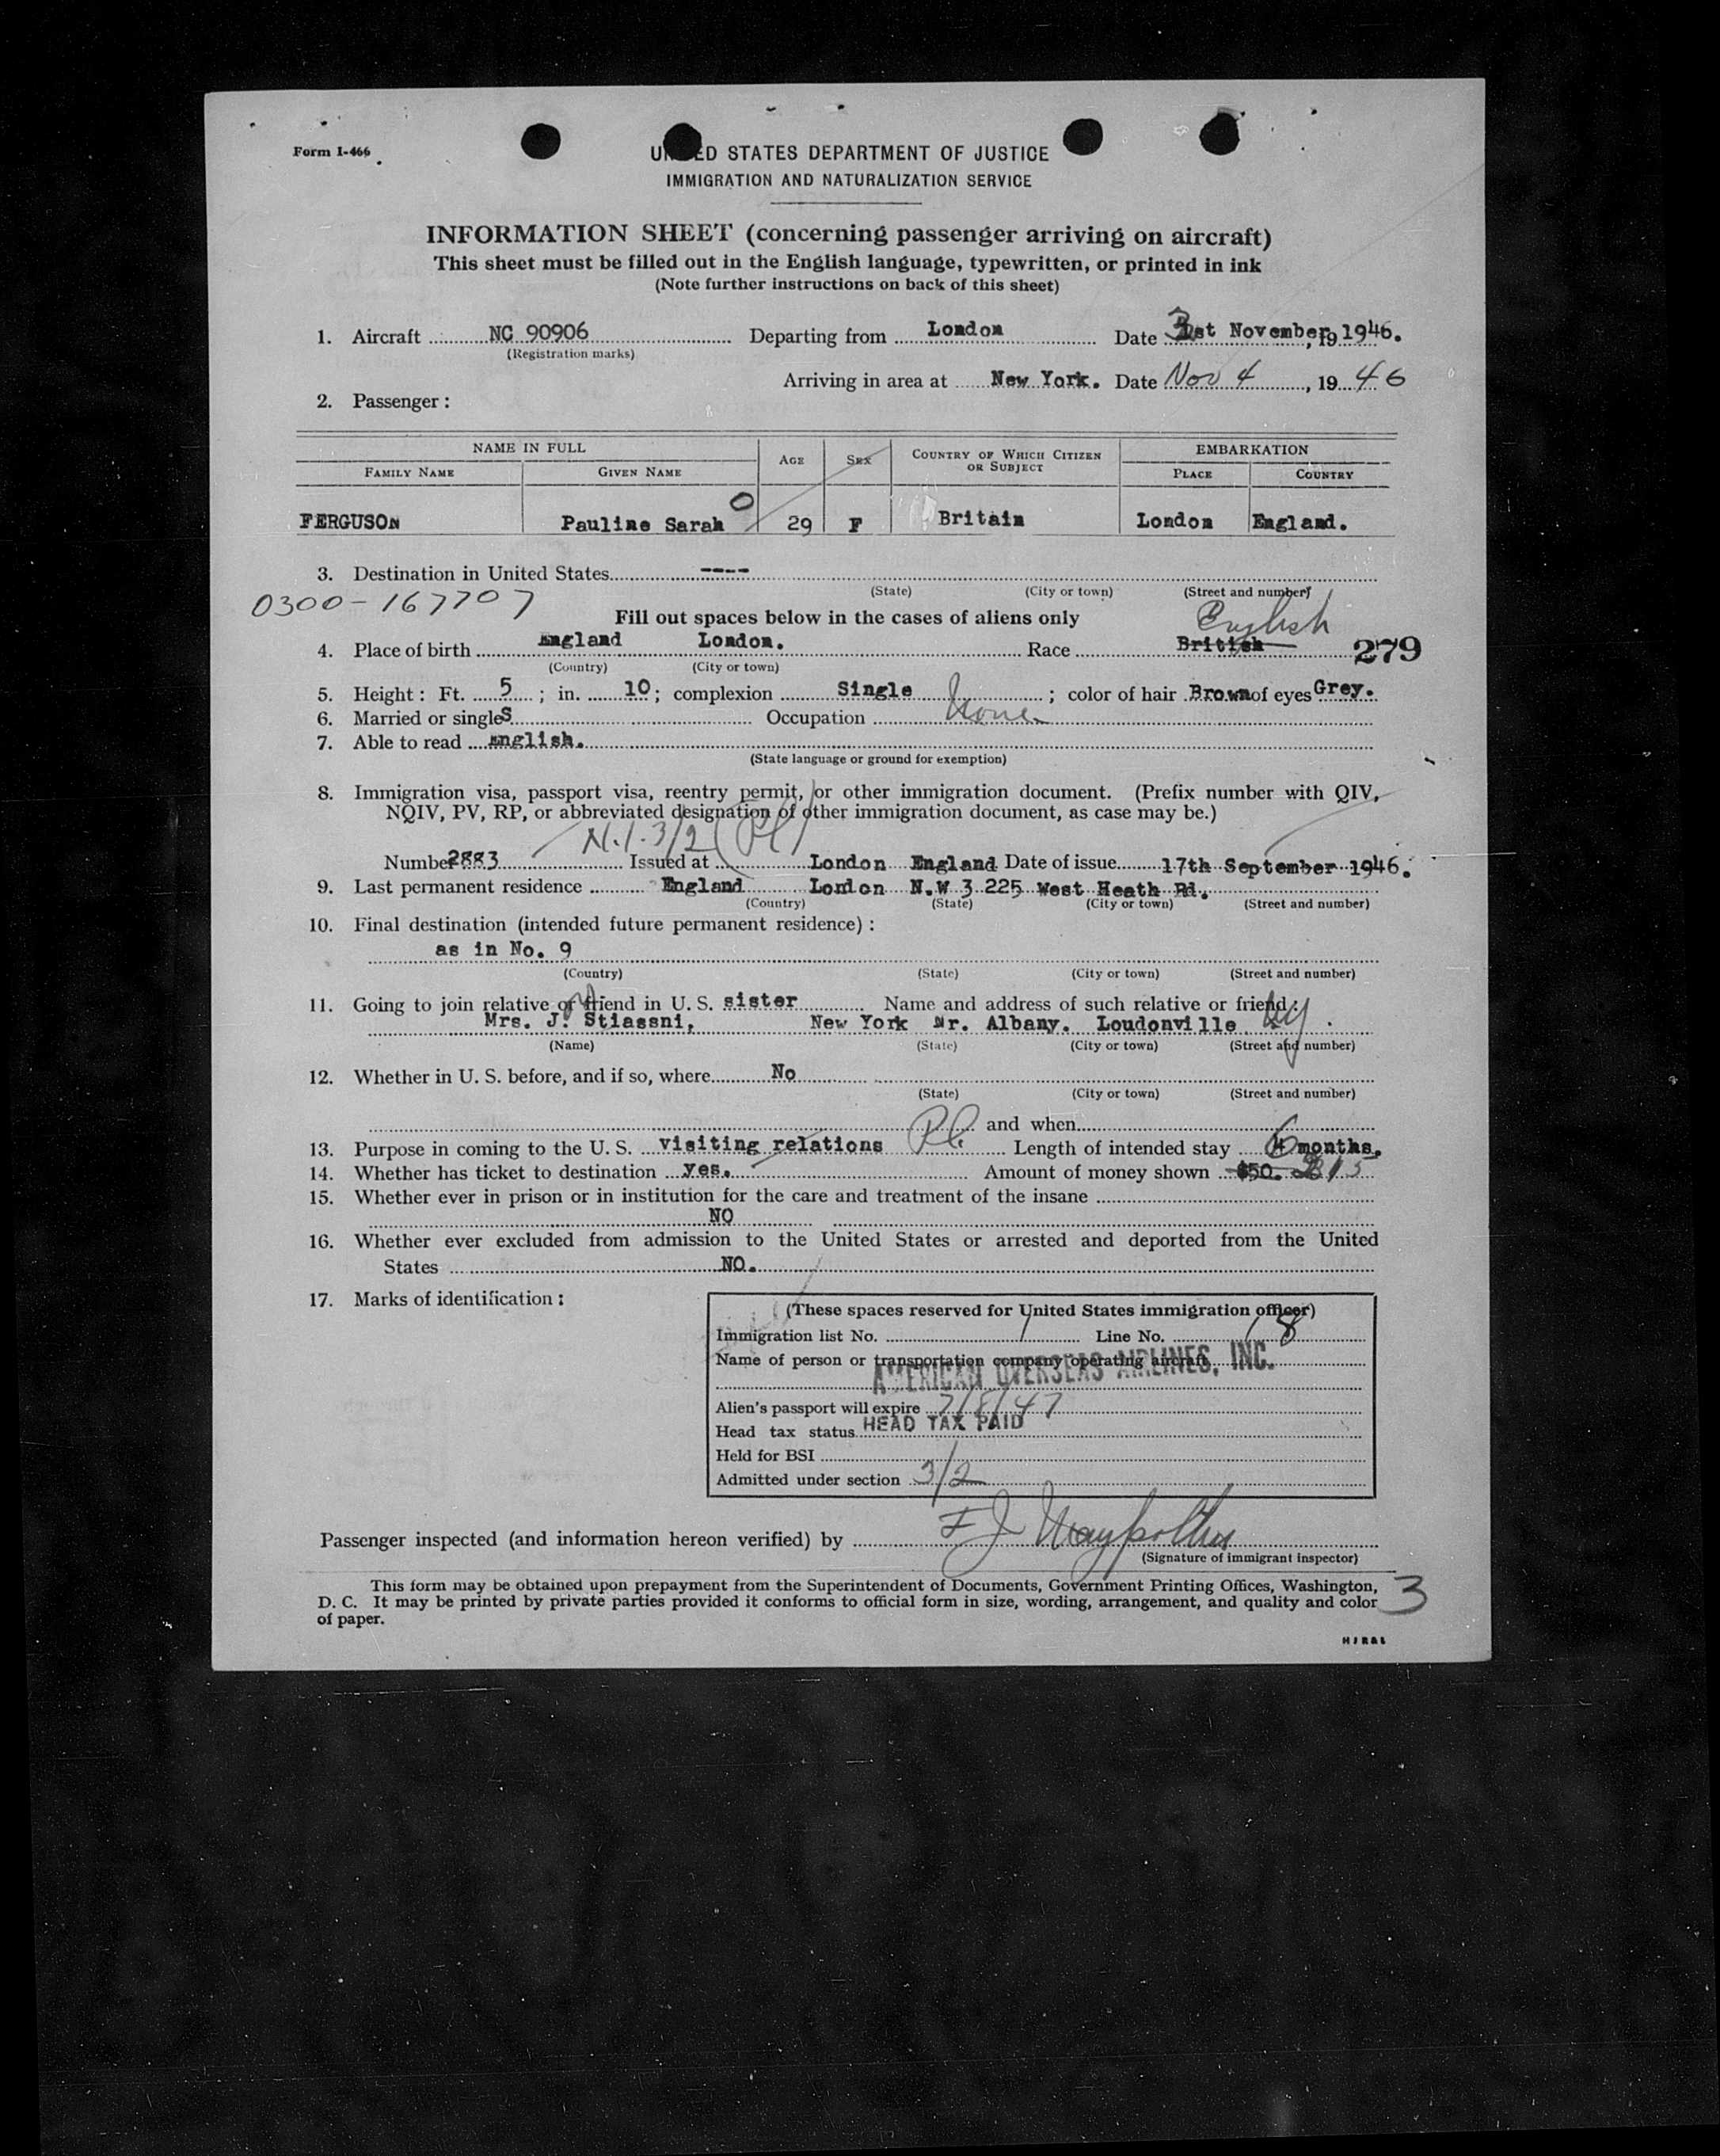 Form I-466
UNITED STATES DEPARTMENT OF JUSTICE
IMMIGRATION AND NATURALIZATION SERVICE
INFORMATION SHEET (concerning passenger arriving on aircraft)
This sheet must be filled out in the English language, typewritten, or printed in ink
(Note further instructions on back of this sheet)
1. Aircraft NC 90906 Departing from London Date 3 1st November, 19 1946.
(Registration marks)
Arriving in area at New York. Date Nov 4, 19 46
2. Passenger:
NAME IN FULL AGE SEX COUNTRY OF WHICH CITIZEN OR SUBJECT EMBARKATION
FAMILY NAME GIVEN NAME PLACE COUNTRY
FERGUSON Pauline Sarah 0 29 F Britain London England.
3. Destination in United States ----
(State) (City or town) (Street and number)
0300-167707
Fill out spaces below in the cases of aliens only English
4. Place of birth England London. Race British 279
(Country) (City or town)
5. Height: Ft. 5; in. 10; complexion Single; color of hair Brown of eyes Grey.
6. Married or single S Occupation None
7. Able to read English.
(State language or ground for exemption)
8. Immigration visa, passport visa, reentry permit, or other immigration document. (Prefix number with QIV,
NQIV, PV, RP, or abbreviated designation of other immigration document, as case may be.)
N.I. 3/2 (Pl)
Number 2883 Issued at London England Date of issue 17th September 1946.
9. Last permanent residence England London N.W 3 225 West Heath Rd.
(Country) (State) (City or town) (Street and number)
10. Final destination (intended future permanent residence):
as in No. 9
(Country) (State) (City or town) (Street and number)
11. Going to join relative or friend in U. S. sister Name and address of such relative or friend:
Mrs. J. Stiassni, New York Nr. Albany. Loudonville NY.
(Name) (State) (City or town) (Street and number)
12. Whether in U. S. before, and if so, where No
(State) (City or town) (Street and number)
and when
13. Purpose in coming to the U. S. visiting relations Pl. Length of intended stay 6 4 months.
14. Whether has ticket to destination yes. Amount of money shown $50.
15. Whether ever in prison or in institution for the care and treatment of the insane
NO
16. Whether ever excluded from admission to the United States or arrested and deported from the United
States NO.
17. Marks of identification:
(These spaces reserved for United States immigration officer)
Immigration list No. 1 Line No. 18
Name of person or transportation company operating aircraft
AMERICAN OVERSEAS AIRLINES, INC.
Alien's passport will expire 7/8/47
Head tax status HEAD TAX PAID
Held for BSI
Admitted under section 3/2
Passenger inspected (and information hereon verified) by F J
(Signature of immigrant inspector)
This form may be obtained upon prepayment from the Superintendent of Documents, Government Printing Offices, Washington,
D. C. It may be printed by private parties provided it conforms to official form in size, wording, arrangement, and quality and color
of paper.
3